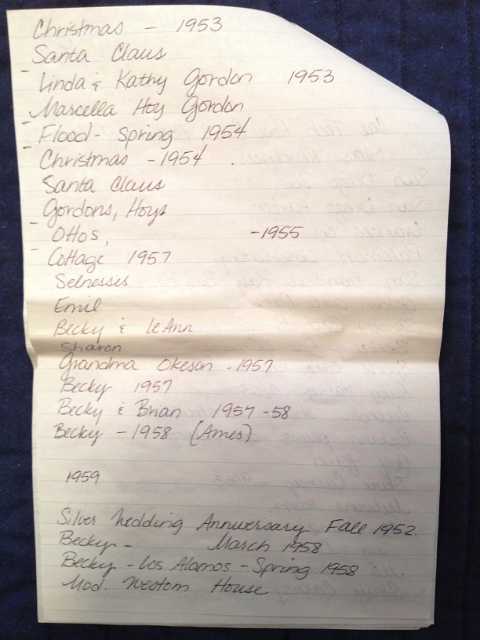 Christmas - 1953
Santa Claus
- Linda & Kathy Gordon 1953
Marcella Hoy Gordon
- Flood - Spring 1954
- Christmas - 1954
Santa Claus
Gordons, Hoys
- Ottos, - 1955
- Cottage 1957
Selnesses
Emil
Becky & LeAnn
Sharon
Grandma Okeson - 1957
Becky 1957
Becky & Brian 1957-58
Becky - 1958 (Ames)
1959
Silver Wedding Anniversary Fall 1952
Becky - March 1958
Becky - Los Alamos - Spring 1958
House